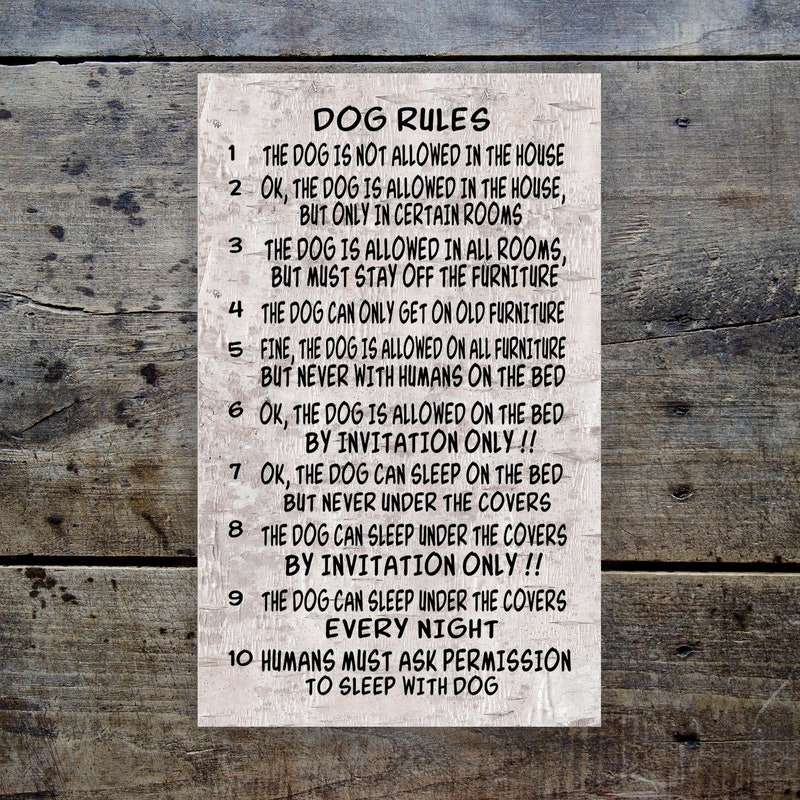 DOG RULES
1 THE DOG IS NOT ALLOWED IN THE HOUSE
2 OK, THE DOG IS ALLOWED IN THE HOUSE,
BUT ONLY IN CERTAIN ROOMS
3 THE DOG IS ALLOWED IN ALL ROOMS,
BUT MUST STAY OFF THE FURNITURE
4 THE DOG CAN ONLY GET ON OLD FURNITURE
5 FINE, THE DOG IS ALLOWED ON ALL FURNITURE
BUT NEVER WITH HUMANS ON THE BED
6 OK, THE DOG IS ALLOWED ON THE BED
BY INVITATION ONLY !!
7 OK, THE DOG CAN SLEEP ON THE BED
BUT NEVER UNDER THE COVERS
8 THE DOG CAN SLEEP UNDER THE COVERS
BY INVITATION ONLY !!
9 THE DOG CAN SLEEP UNDER THE COVERS
EVERY NIGHT
10 HUMANS MUST ASK PERMISSION
TO SLEEP WITH DOG